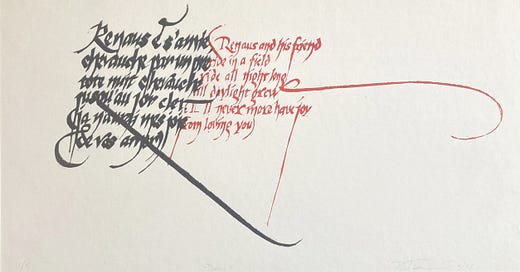 Renaus & s'amie
chevauche par un pre
tote nuit chevauche
jusqu'au jor cler
(Ja n'aurai mes joie
de vos amer)
Renaus and his friend
ride in a field
ride all night long
till daylight grew
I'll never more have joy
from loving you)